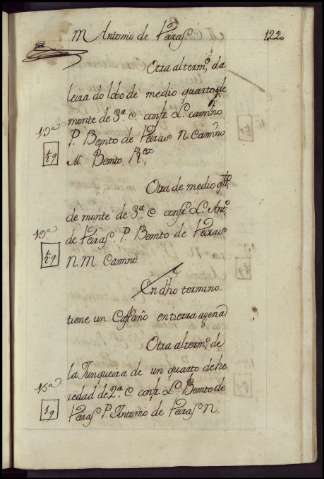 M Antonio de Paras
122
Otra al term.º da
leira do lobo de medio quarto de
monte de 3.ª C confr. L. camino
P. Benito de Paras N. Camino
M. Benito
Otra de medio
de monte de 3.ª C confr. L. Ant.º
de Paras. P. Benito de Paras
N. M. Camino
En dho termino
tiene un Castaño en tierra agena
Otra al term.º de
la Junqueira de un quarto de he
redad de 2.ª C confr. L. Benito de
Paras P. Antonio de Paras N.